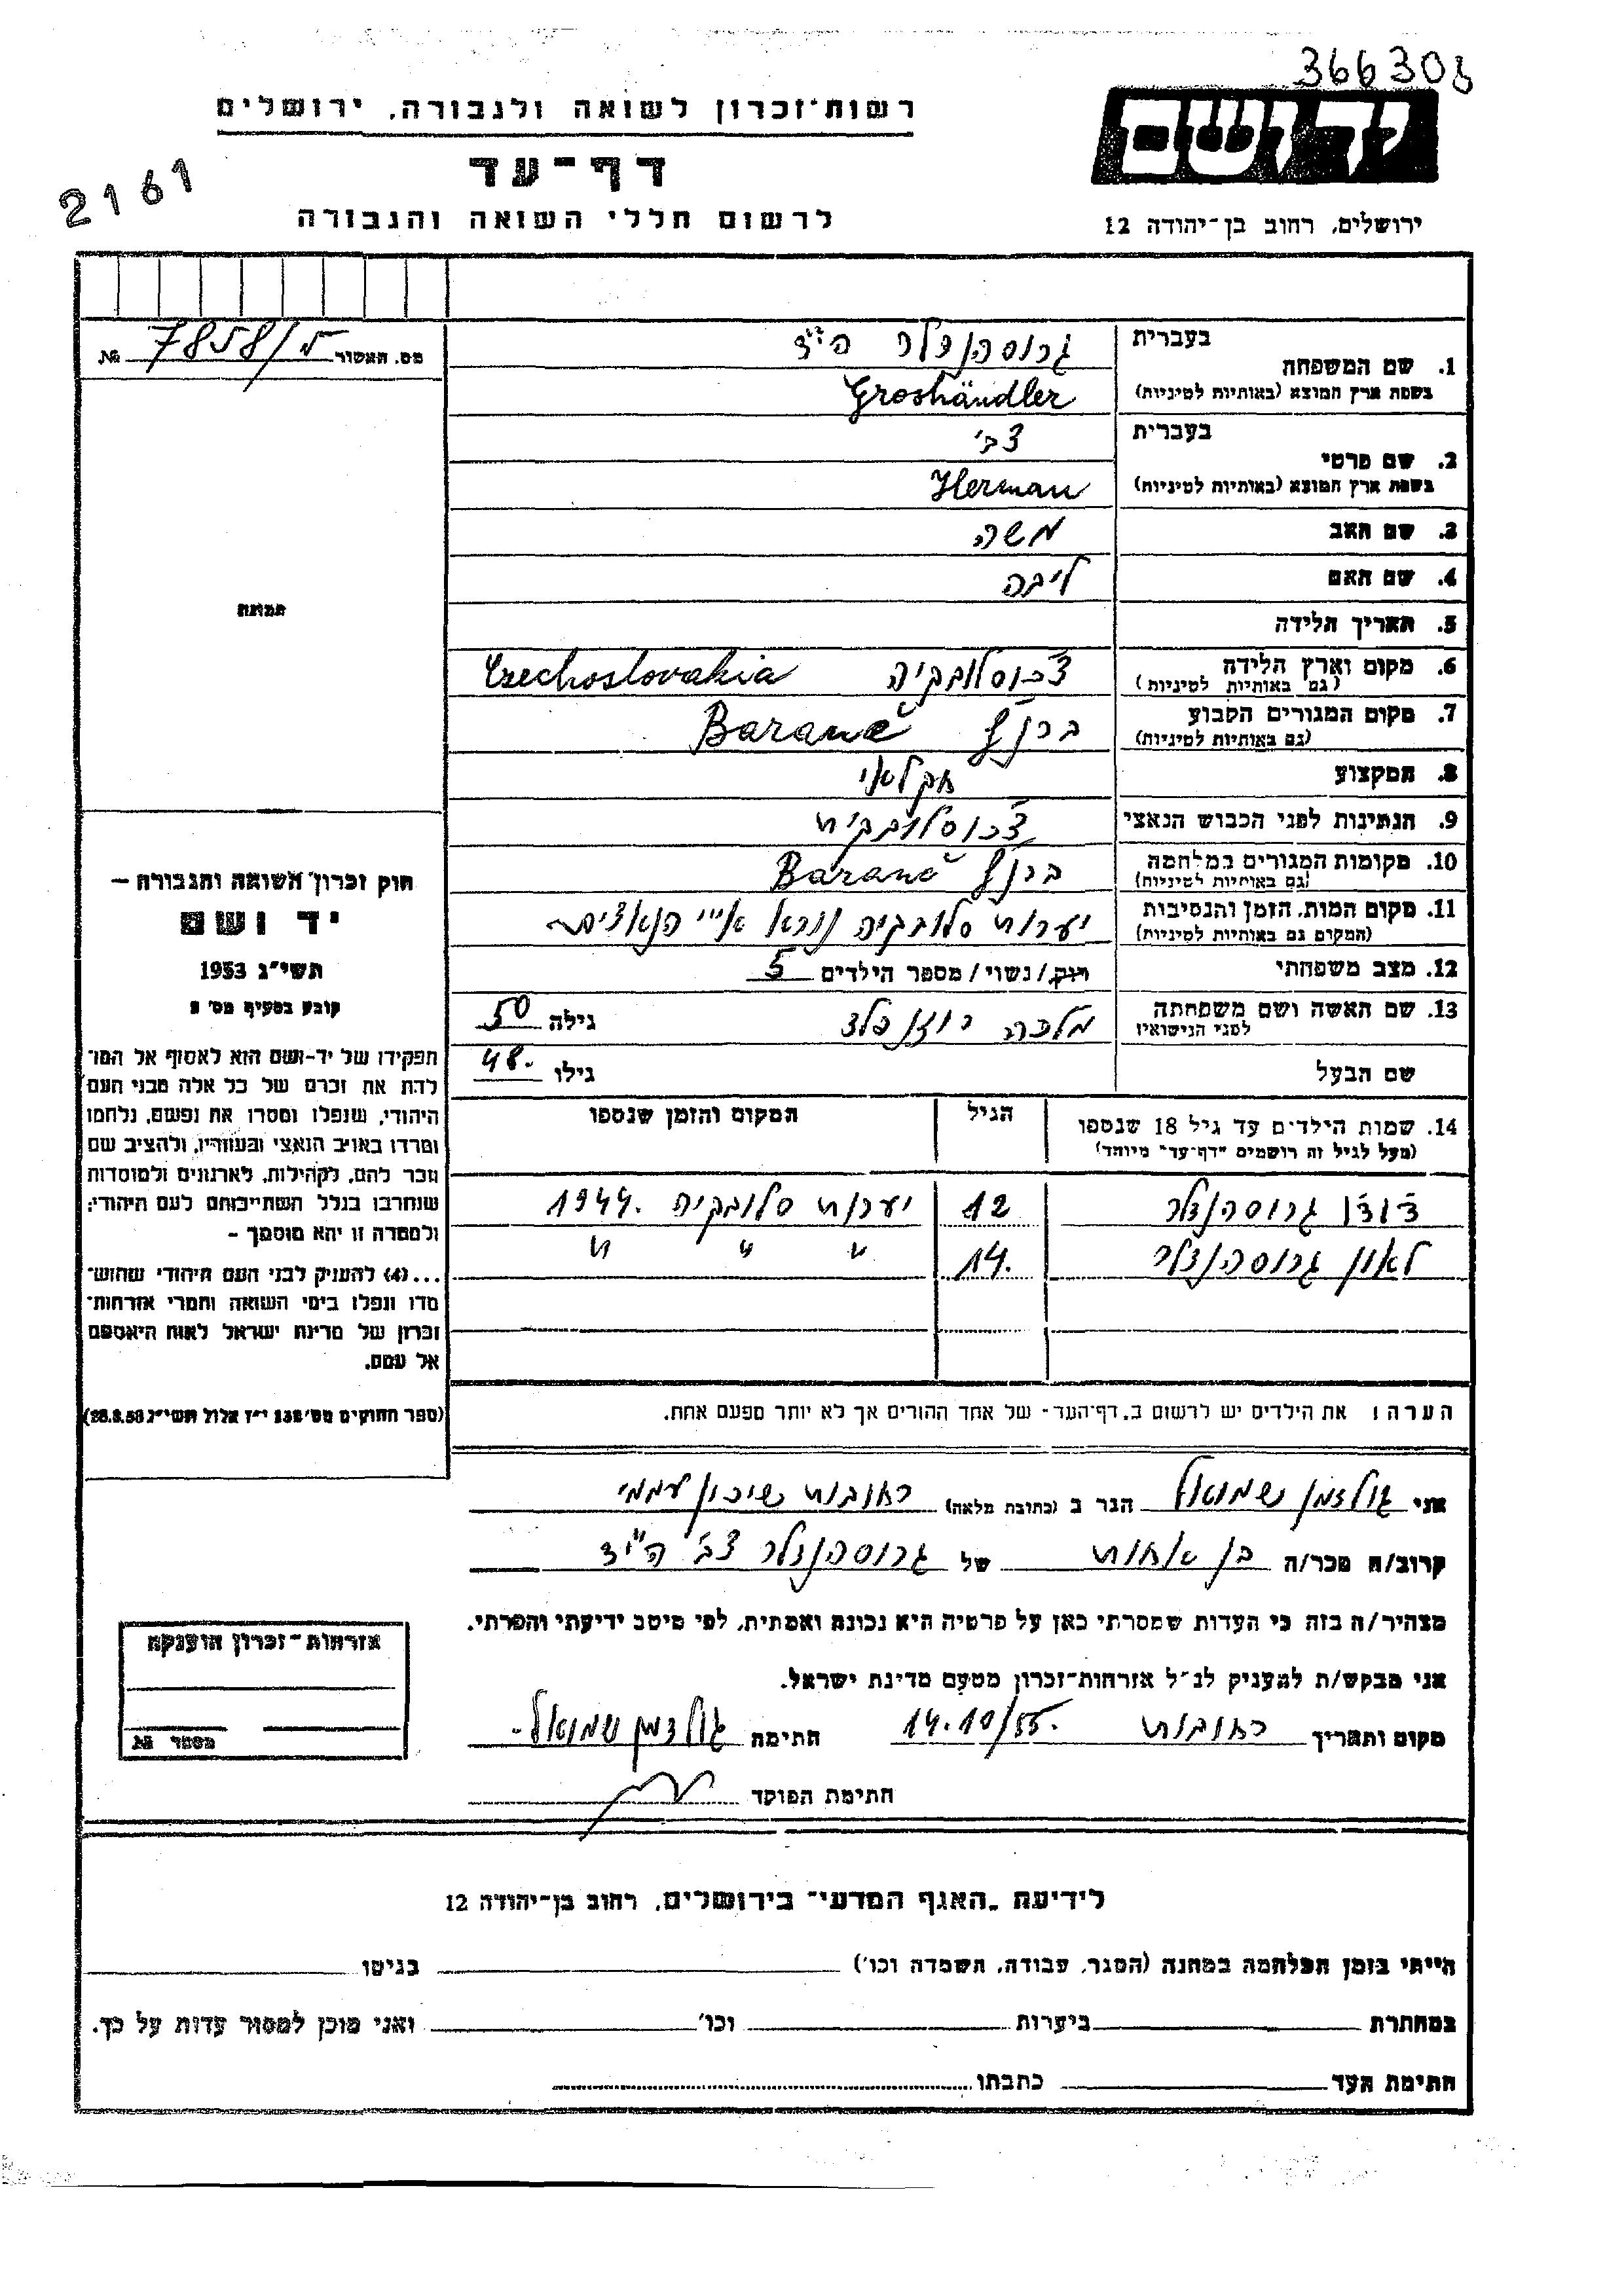 366303
רשות־זכרון לשואה ולגבורה, ירושלים
יד ושם
דף־עד
2161
לרשום חללי השואה והגבורה
ירושלים, רחוב בן־יהודה 12
מס. האשור 7858/מ №
בעברית
1. שם המשפחה
גרוסהנדלר הי״ד
בשפת ארץ המוצא (באותיות לטיניות)
Groshändler
בעברית
צבי
2. שם פרטי
בשפת ארץ המוצא (באותיות לטיניות)
Herman
3. שם האב
משה
4. שם האם
ליבה
5. תאריך הלידה
6. מקום וארץ הלידה
(גם באותיות לטיניות)
צ׳כוסלובקיה Czechoslovakia
7. מקום המגורים הקבוע
(גם באותיות לטיניות)
ברנץ׳ Baranč
8. המקצוע
חקלאי
9. הנתינות לפני הכבוש הנאצי
צ׳כוסלובקית
10. מקומות המגורים במלחמה
(גם באותיות לטיניות)
ברנץ׳ Baranč
11. מקום המות, הזמן והנסיבות
(המקום גם באותיות לטיניות)
יערות סלובקיה נורא ע״י הנאצים
12. מצב משפחתי
רווק/נשוי/מספר הילדים 5
13. שם האשה ושם משפחתה
לפני הנישואין
מלכה רוזנפלד
גילה 50
שם הבעל
גילו 48.
14. שמות הילדים עד גיל 18 שנספו
(מעל לגיל זה רושמים "דף־עד" מיוחד)
הגיל
המקום והזמן שנספו
גרוסהנדלר 12 יערות סלובקיה 1944.
לאון גרוסהנדלר 14. " " "
הערה: את הילדים יש לרשום ב„דף־העד" של אחד ההורים אך לא יותר מפעם אחת.
תמונה
חוק זכרון השואה והגבורה —
יד ושם
תשי״ג 1953
קובע בסעיף מס׳ 2
תפקידו של יד־ושם הוא לאסוף אל המו־
לדת את זכרם של כל אלה מבני העם
היהודי, שנפלו ומסרו את נפשם, נלחמו
ומרדו באויב הנאצי ובעוזריו, ולהציב שם
וזכר להם, לקהילות, לארגונים ולמוסדות
שנחרבו בגלל השתייכותם לעם היהודי;
ולמטרה זו יהא מוסמך —
...(4) להעניק לבני העם היהודי שהוש־
מדו ונפלו בימי השואה והמרי אזרחות־
זכרון של מדינת ישראל לאות היאספם
אל עמם.
(ספר החוקים מס׳ 132 י״ז אלול תשי״ג 28.8.53)
אני גולדמן שמואל הגר ב (כתובת מלאה) רחובות שיכון עממי
קרוב/ה מכר/ה בן אחות של גרוסהנדלר צבי הי״ד
מצהיר/ה בזה כי העדות שמסרתי כאן על פרטיה היא נכונה ואמתית, לפי מיטב ידיעתי והכרתי.
אני מבקש/ת להעניק לנ״ל אזרחות־זכרון מטעם מדינת ישראל.
מקום ותאריך רחובות 14.10/55. חתימה גולדמן שמואל
חתימת הפוקד
אזרחות־זכרון הוענקה
מספר №
לידיעת „האגף המדעי" בירושלים, רחוב בן־יהודה 12
הייתי בזמן המלחמה במחנה (הסגר, עבודה, השמדה וכו׳) בגיטו
במחתרת ביערות וכו׳ ואני מוכן למסור עדות על כך.
חתימת העד כתבתו